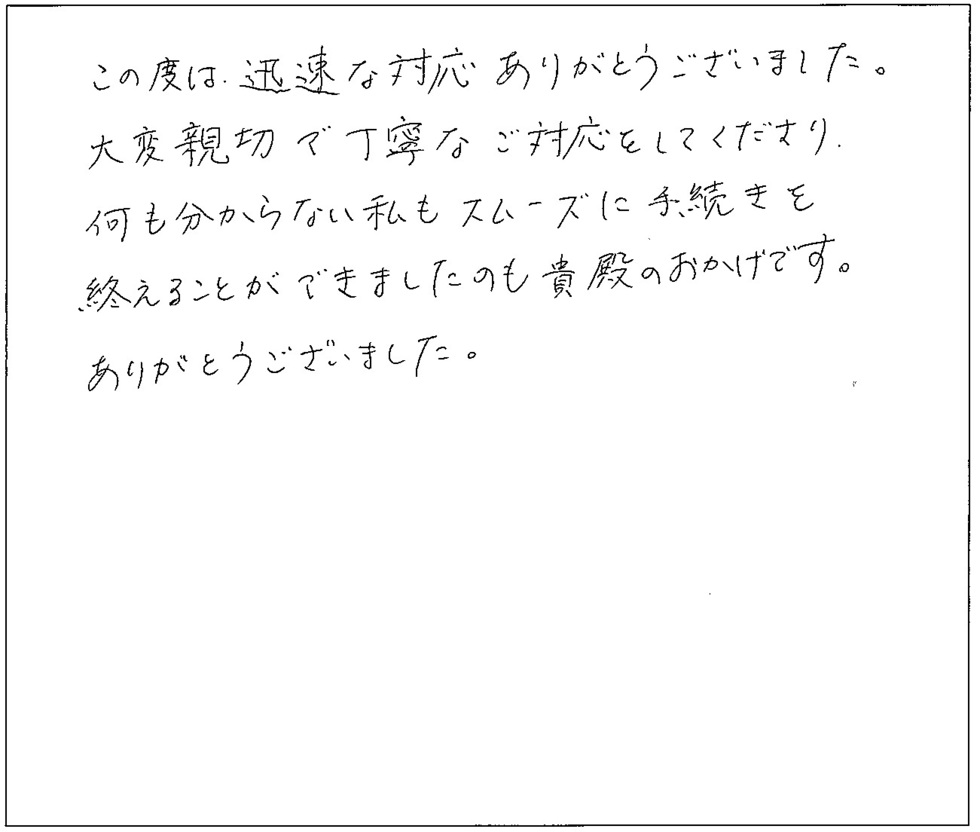 この度は、迅速な対応ありがとうございました。
大変親切で丁寧なご対応をしてくださり、
何も分からない私もスムーズに手続きを
終えることができましたのも貴殿のおかげです。
ありがとうございました。